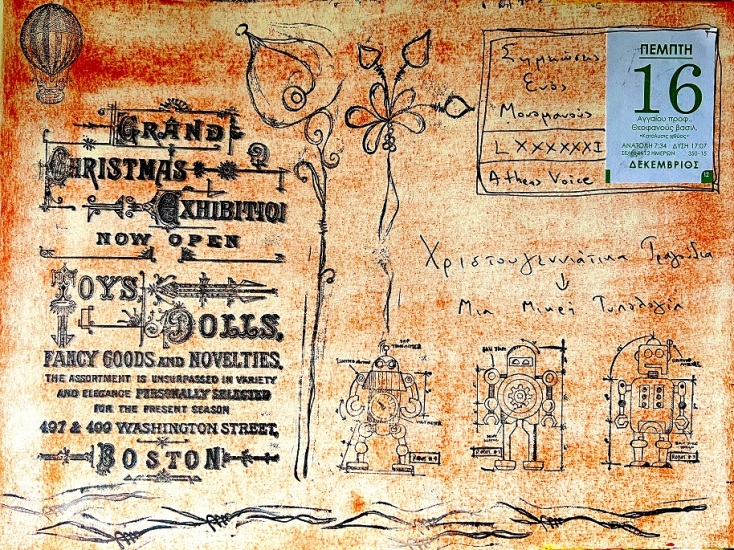 GRAND
CHRISTMAS
EXHIBITION
NOW OPEN
TOYS,
DOLLS,
FANCY GOODS AND NOVELTIES.
THE ASSORTMENT IS UNSURPASSED IN VARIETY
AND ELEGANCE PERSONALLY SELECTED
FOR THE PRESENT SEASON
497 & 499 WASHINGTON STREET,
BOSTON
Σημειώσεις
Ενός
Μονομανούς
LXXXXXXI
Athens Voice
ΠΕΜΠΤΗ
16
Αγγαίου προφ.
Θεοφανούς βασιλ.
«Κατάλυσις ιχθύος»
ΑΝΑΤΟΛΗ 7:34 ΔΥΣΗ 17:07
ΣΕΛΗΝΗ 12 ΗΜΕΡΩΝ 350-15
ΔΕΚΕΜΒΡΙΟΣ
12
Χριστουγεννιάτικα Τραγούδια
↓
Μια Μικρή Τυπολογία